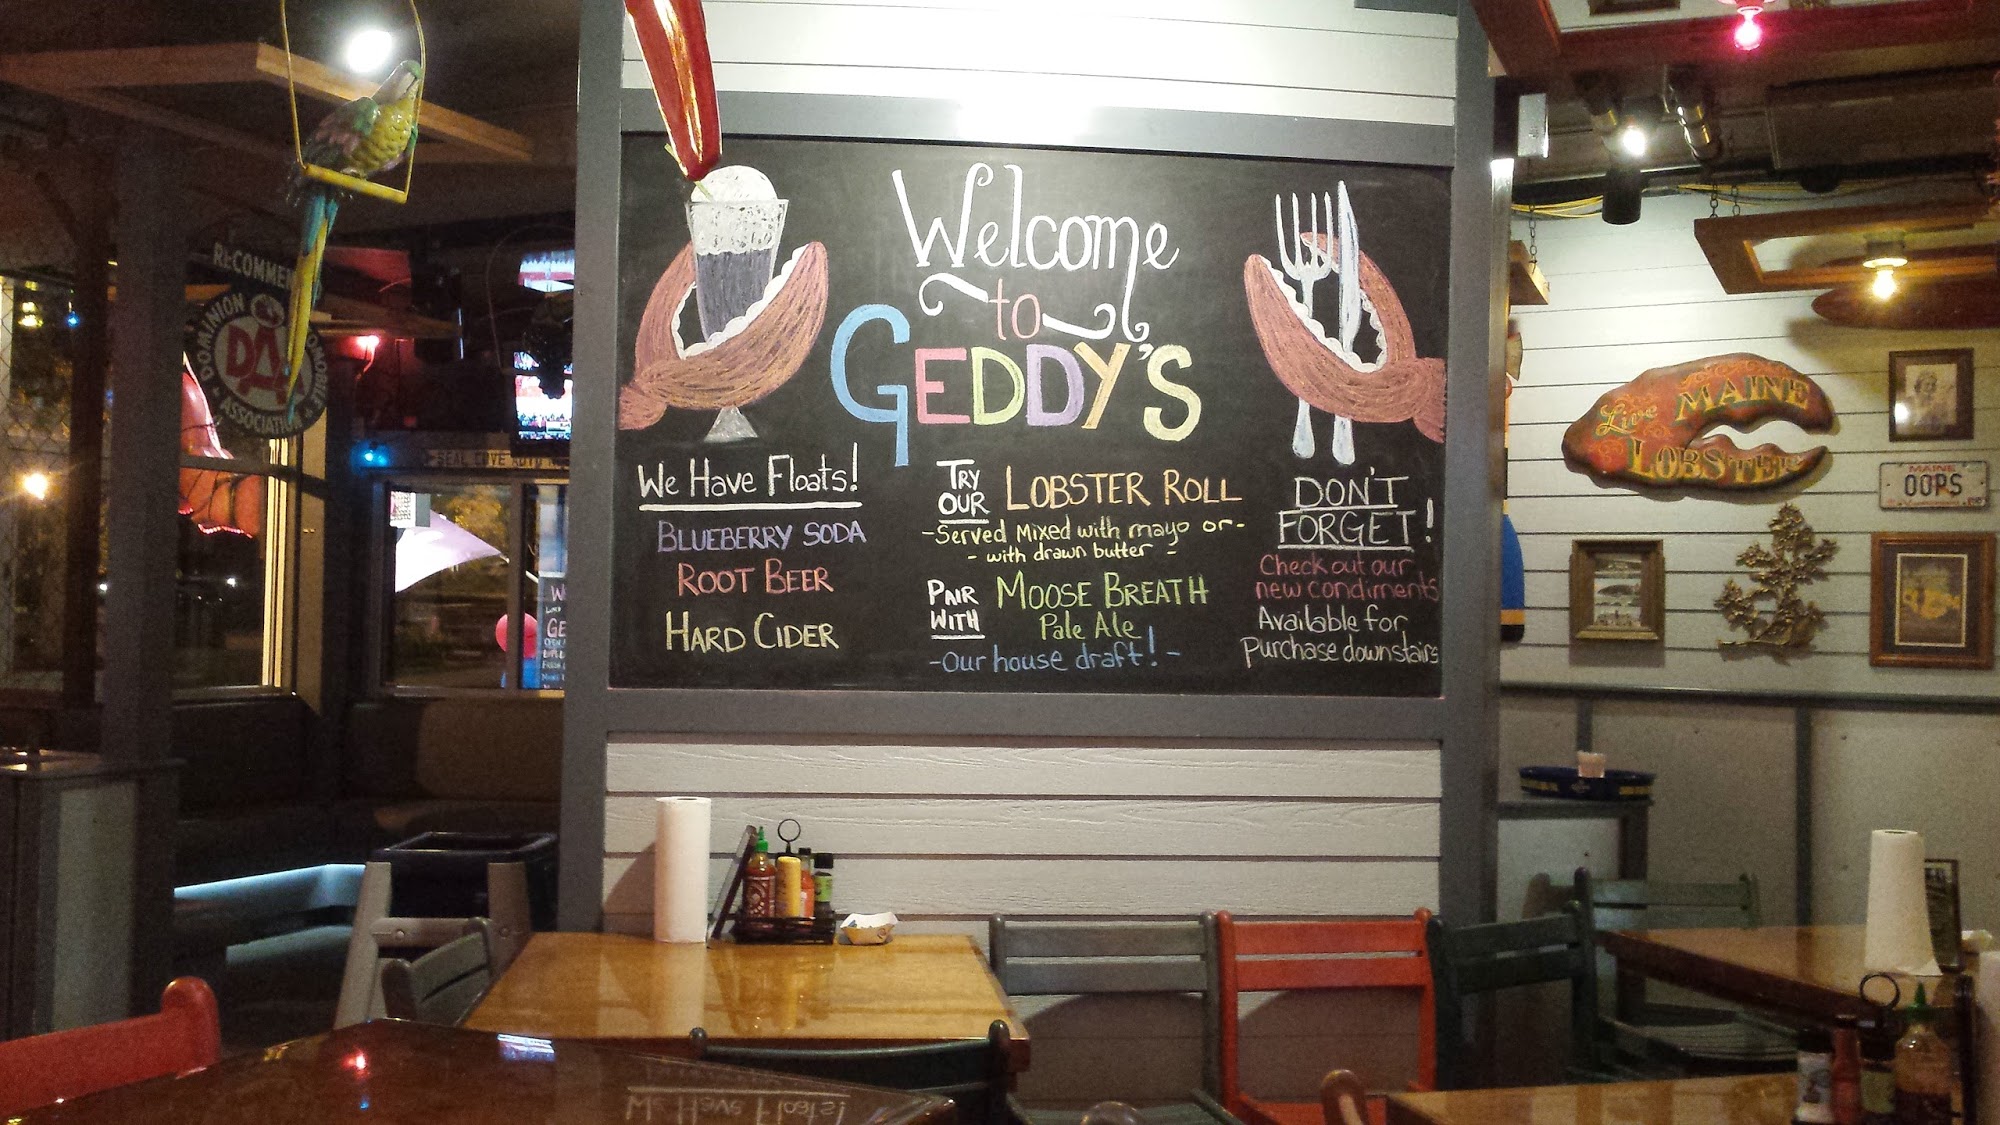 Welcome
to
GEDDY'S
We Have Floats!
BLUEBERRY SODA
ROOT BEER
HARD CIDER
TRY OUR LOBSTER ROLL
-Served Mixed with mayo or-
- with drawn butter -
PAIR WITH MOOSE BREATH
Pale Ale
-our house draft!-
DON'T
FORGET!
Check out our
new condiments
Available for
purchase downstairs
RECOMMEN
DOMINION
DAA
ASSOCIATION
SEAL COVE AUTO
Live MAINE
LOBSTER
MAINE
OOPS
We Have Floats!